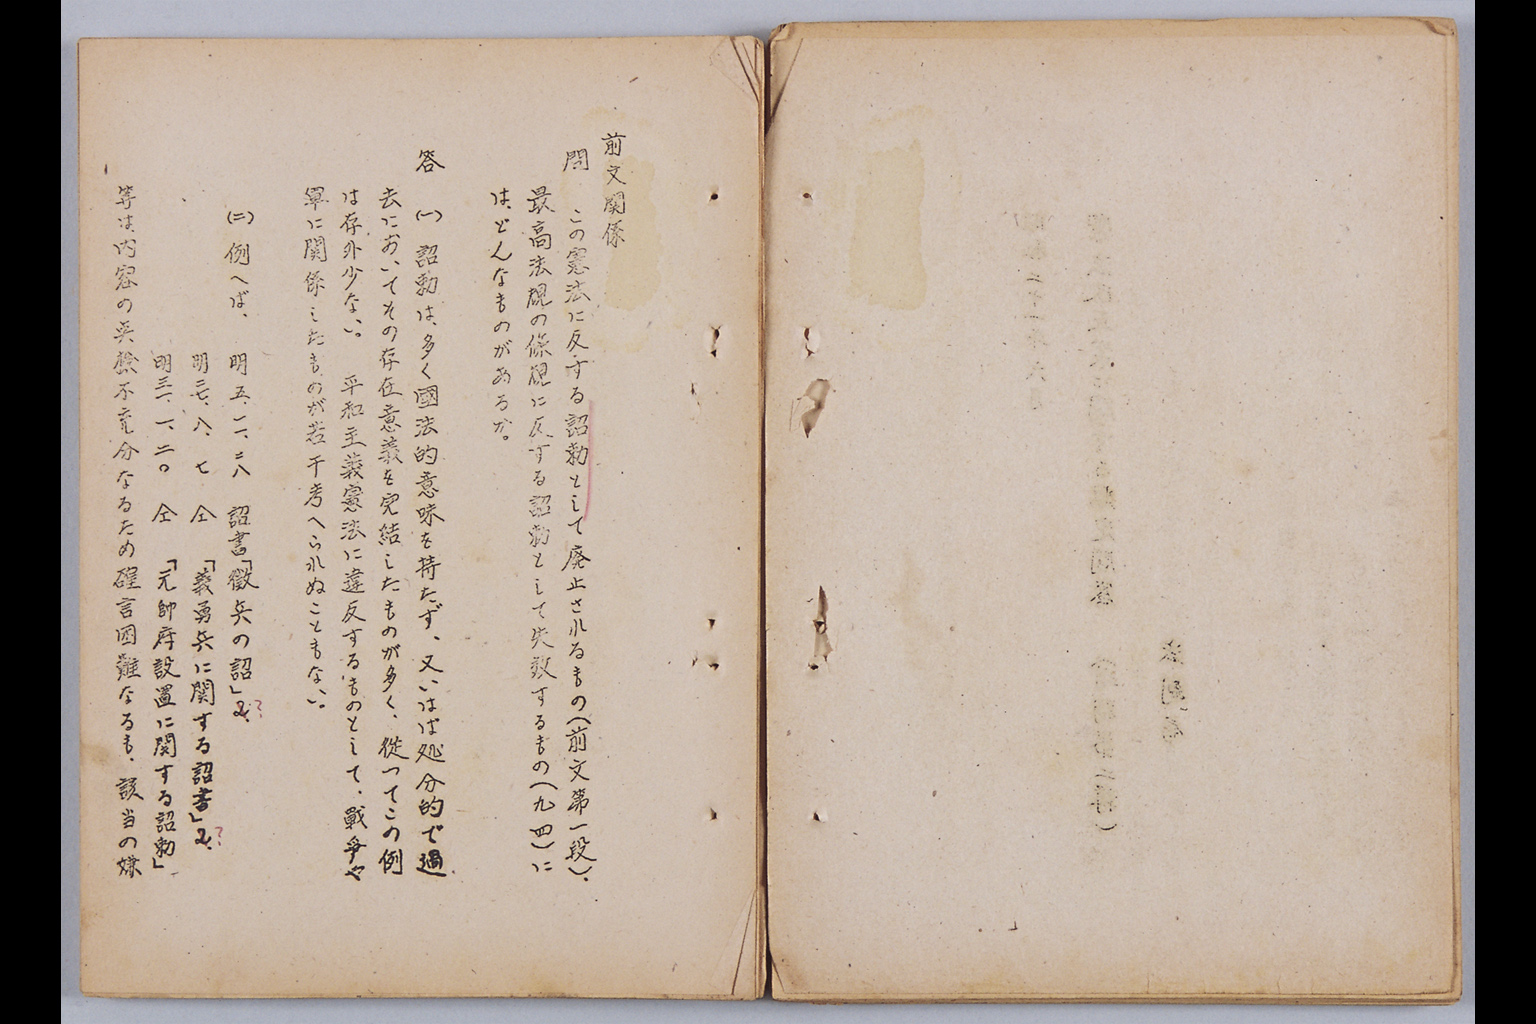 前文関係
問　この憲法に反する詔勅として廃止されるもの(前文第一段)、
最高法規の條規に反する詔勅として失效するもの(九四)に
は、どんなものがあるか。
答　(一)　詔勅は、多く國法的意味を持たず、又いはば処分的で過
去においてその存在意義を完結したものが多く、從つてこの例
は存外少ない。　平和主義憲法に違反するものとして、戰爭や
軍に関係したものが若干考へられぬこともない。
(二)　例へば、　明五、一一、二八　詔書「徴兵の詔」?
明二七、八、七　仝　「義勇兵に関する詔書」?
明三一、一、二〇　仝　「元帥府設置に関する詔勅」
等は内容の点檢不充分なるため確言困難なるも、該当の嫌